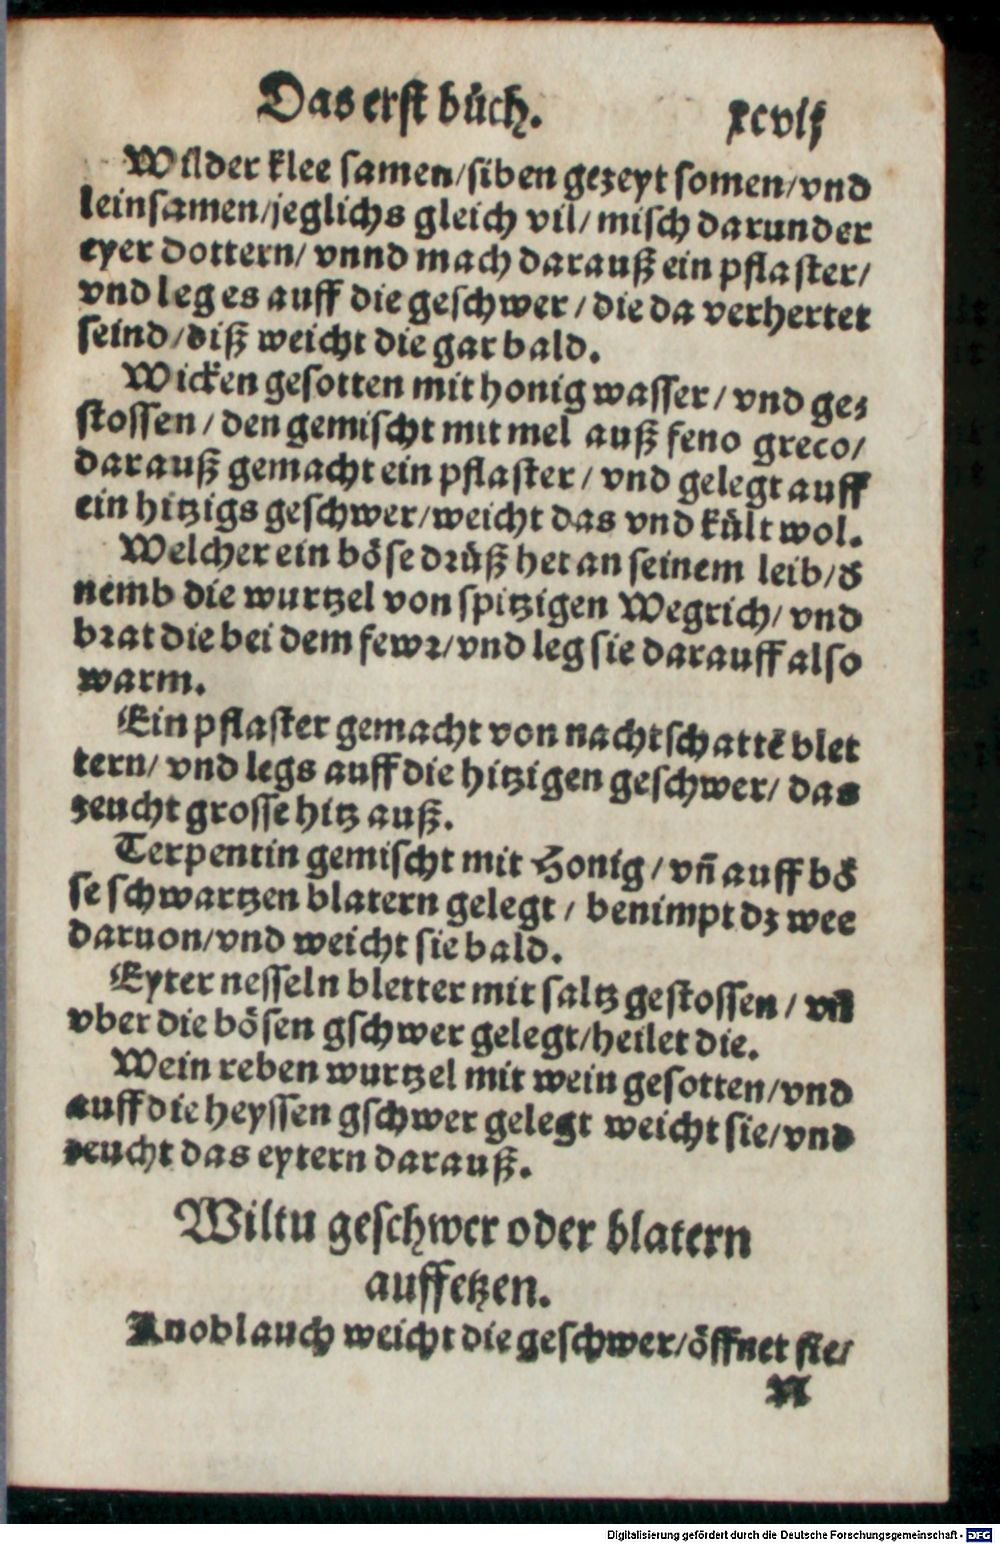 Das erst bůch. xcvij
Wilder klee samen/siben gezeyt somen/vnd
leinsamen/jeglichs gleich vil/ misch darunder
eyer dottern/ vnnd mach darauß ein pflaster/
vnd leg es auff die geschwer / die da verhertet
seind/diß weicht die gar bald.
Wicken gesotten mit honig wasser / vnd ge⸗
stossen / den gemischt mit mel auß feno greco/
darauß gemacht ein pflaster / vnd gelegt auff
ein hitzigs geschwer/weicht das vnd kült wol.
Welcher ein böse drüß het an seinem leib/đ
nemb die wurtzel von spitzigen Wegrich/ vnd
brat die bei dem fewr/vnd leg sie darauff also
warm.
Ein pflaster gemacht von nachtschattē blet
tern/ vnd legs auff die hitzigen geschwer/ das
zeucht grosse hitz auß.
Terpentin gemischt mit Honig / vn̄ auff bö
se schwartzen blatern gelegt / benimpt dz wee
daruon/vnd weicht sie bald.
Eyter nesseln bletter mit saltz gestossen / vn̄
vber die bösen gschwer gelegt/heilet die.
Wein reben wurtzel mit wein gesotten/vnd
auff die heyssen gschwer gelegt weicht sie/vnd
zeucht das eytern darauß.
Wiltu geschwer oder blatern
auffetzen.
Knoblauch weicht die geschwer/öffnet sie/
N
Digitalisierung gefördert durch die Deutsche Forschungsgemeinschaft - DFG